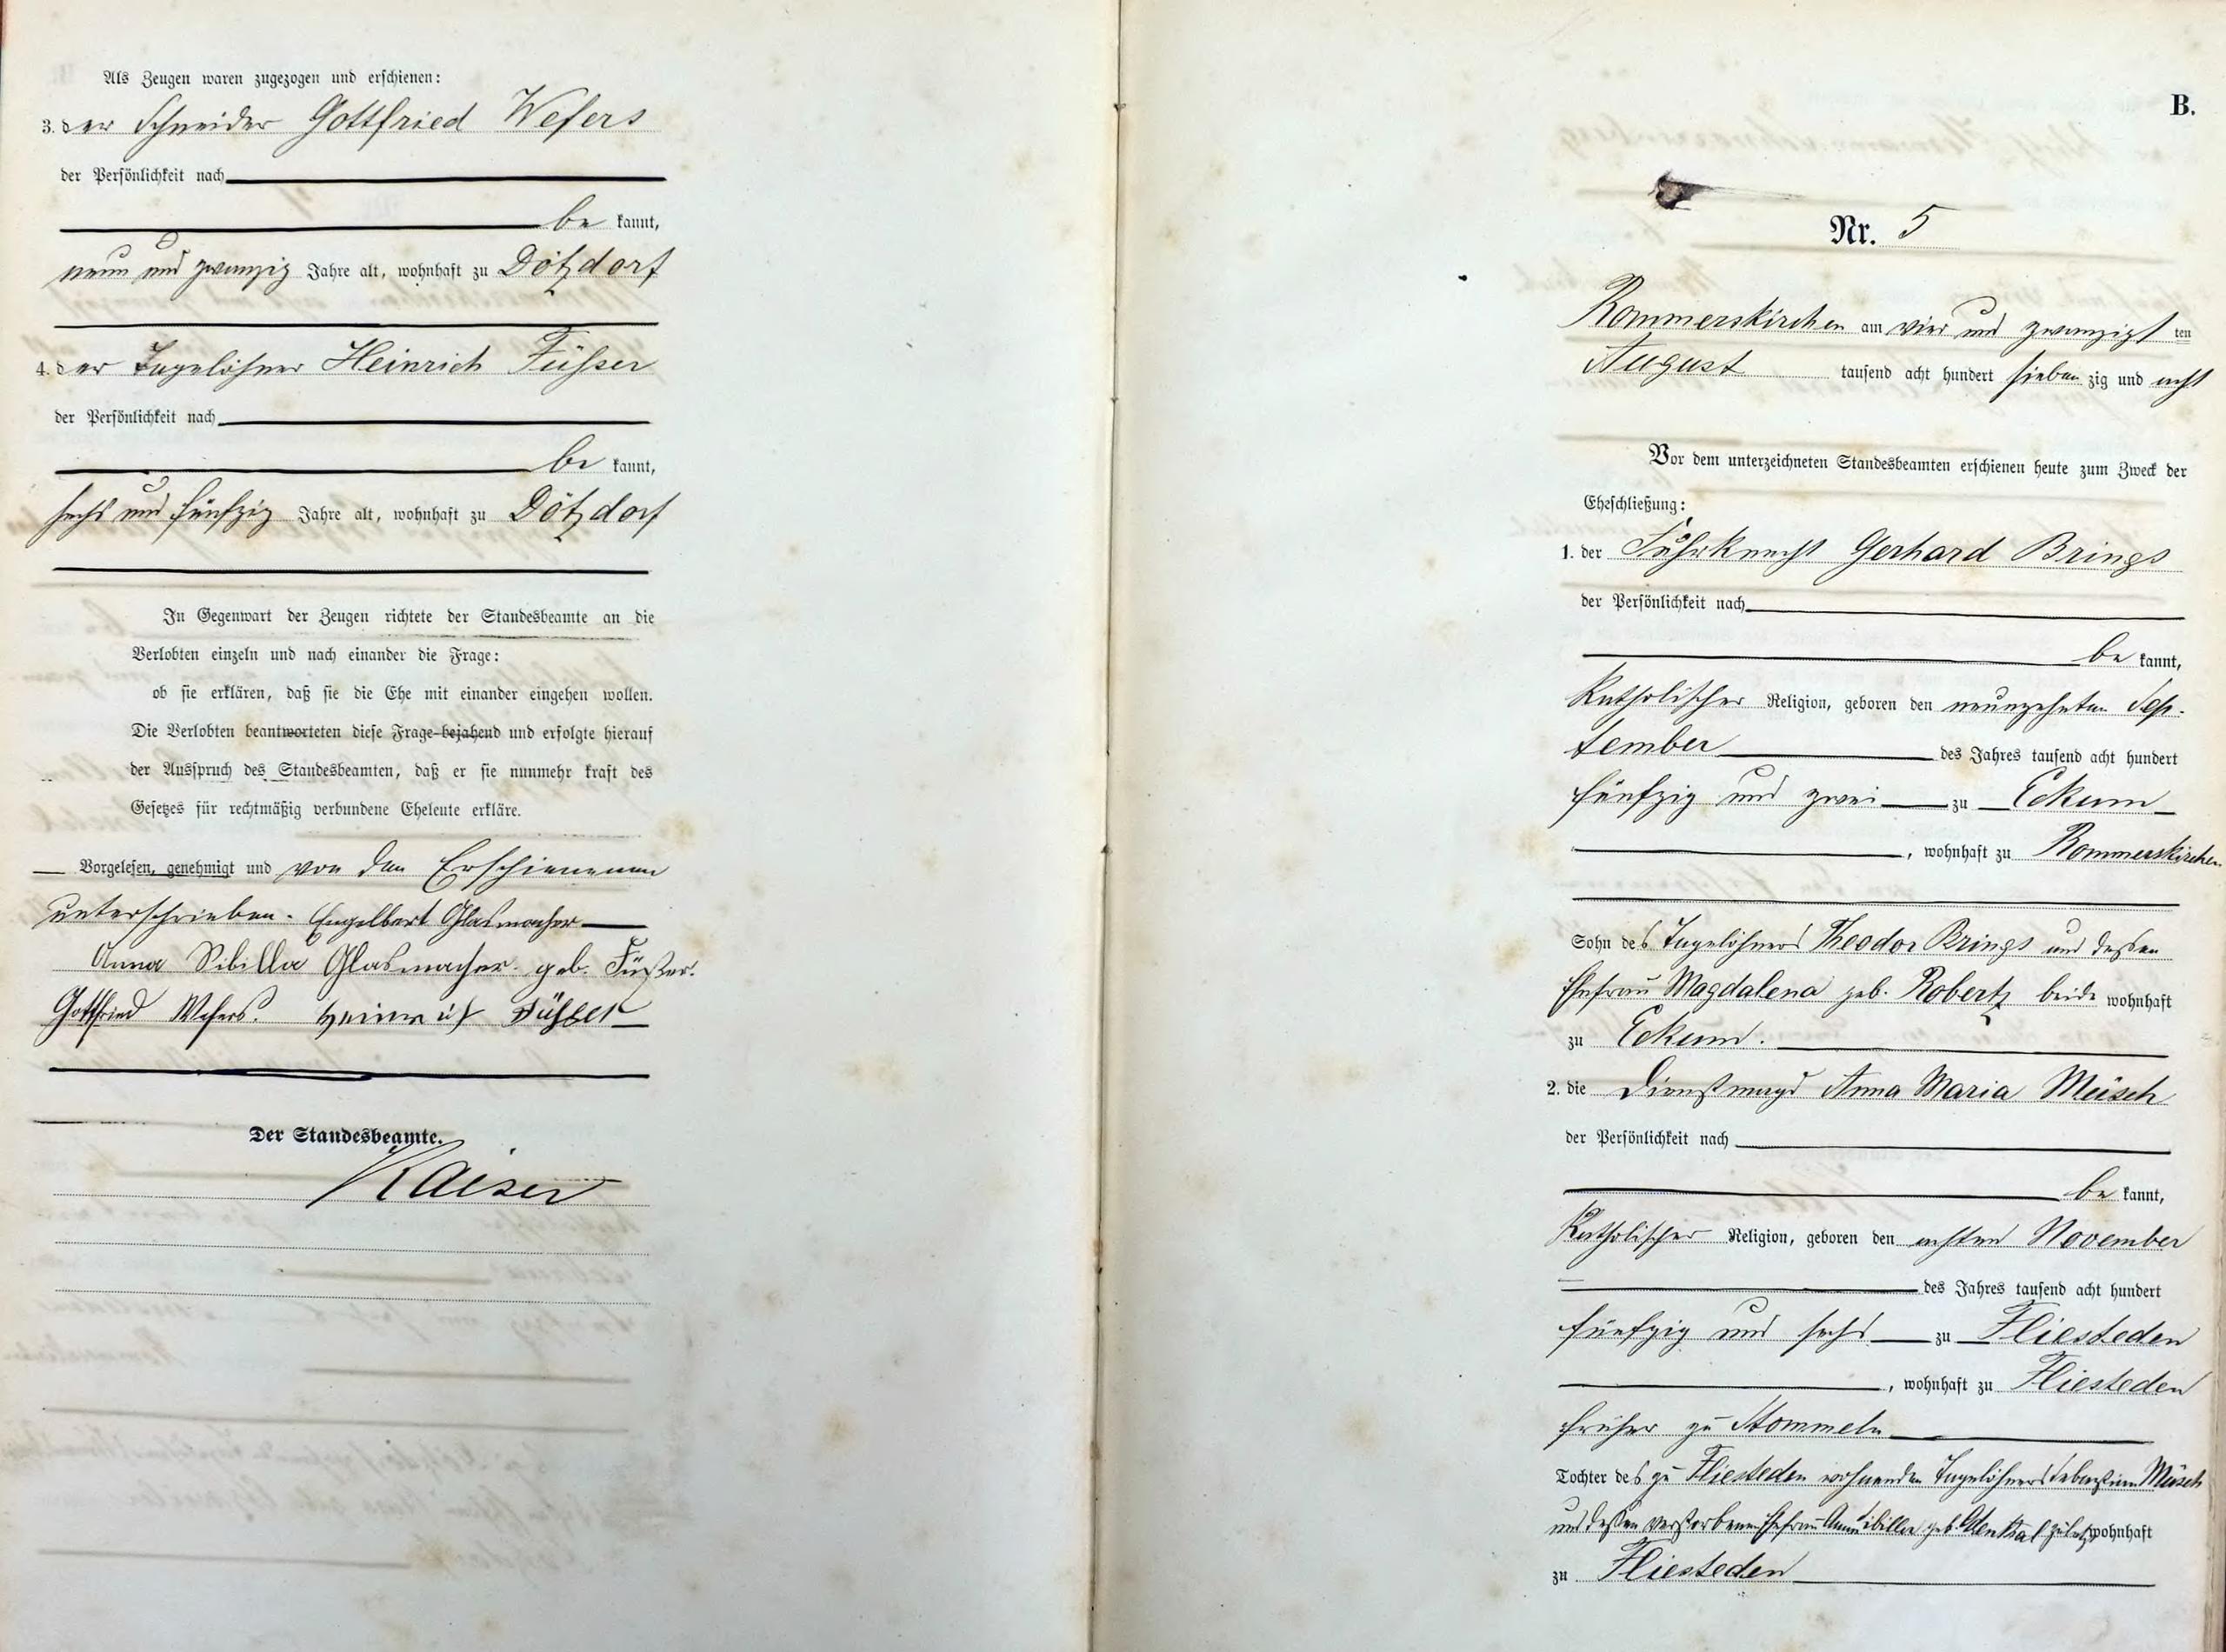 Als Zeugen waren zugezogen und erschienen:
3. der Schneider Gottfried Wefers
der Persönlichkeit nach
be kannt,
neun und zwanzig Jahre alt, wohnhaft zu Dötzdorf
4. der Tagelöhner Heinrich Füsser
der Persönlichkeit nach
be kannt,
sechs und fünfzig Jahre alt, wohnhaft zu Dötzdorf
In Gegenwart der Zeugen richtete der Standesbeamte an die
Verlobten einzeln und nach einander die Frage:
ob sie erklären, daß sie die Ehe mit einander eingehen wollen.
Die Verlobten beantworteten diese Frage bejahend und erfolgte hierauf
der Ausspruch des Standesbeamten, daß er sie nunmehr kraft des
Gesetzes für rechtmäßig verbundene Eheleute erkläre.
Vorgelesen, genehmigt und von den Erschienenen
unterschrieben. Engelbert Glasmacher
Anna Sibilla Glasmacher geb. Füßer.
Gottfried Wefers. Heinrich Füsser
Der Standesbeamte.
Kaiser
B.
Nr. 5
Rommerskirchen am vier und zwanzigst ten
August tausend acht hundert sieben zig und acht
Vor dem unterzeichneten Standesbeamten erschienen heute zum Zweck der
Eheschließung:
1. der Fuhrknecht Gerhard Brings
der Persönlichkeit nach
be kannt,
Katholischer Religion, geboren den neunzehnten Sep-
tember des Jahres tausend acht hundert
fünfzig und zwei zu Eckum
, wohnhaft zu Rommerskirchen
Sohn des Tagelöhners Theodor Brings und dessen
Ehefrau Magdalena geb. Robertz beide wohnhaft
zu Eckum.
2. die Dienstmagd Anna Maria Müsch
der Persönlichkeit nach
be kannt,
Katholischer Religion, geboren den achten November
des Jahres tausend acht hundert
fünfzig und sechs zu Fliesteden
, wohnhaft zu Fliesteden
früher zu Stommeln
Tochter des zu Fliesteden wohnenden Tagelöhners Sebastian Müsch
und dessen verstorbenen Ehefrau geb. zuletzt wohnhaft
zu Fliesteden